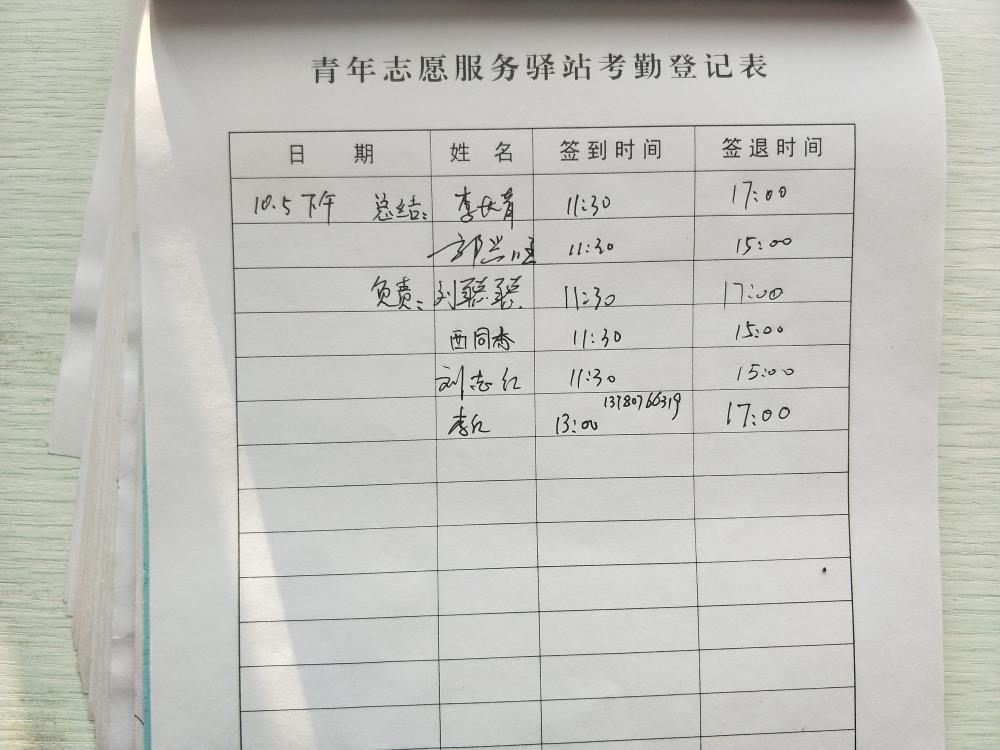 青年志愿服务驿站考勤登记表
日期 姓名 签到时间 签退时间
10.5下午 总结： 李长青 11:30 17:00
郭兴旺 11:30 15:00
负责： 刘聪聪 11:30 17:00
西同春 11:30 15:00
刘志红 11:30 15:00
13780766319
李红 13:00 17:00